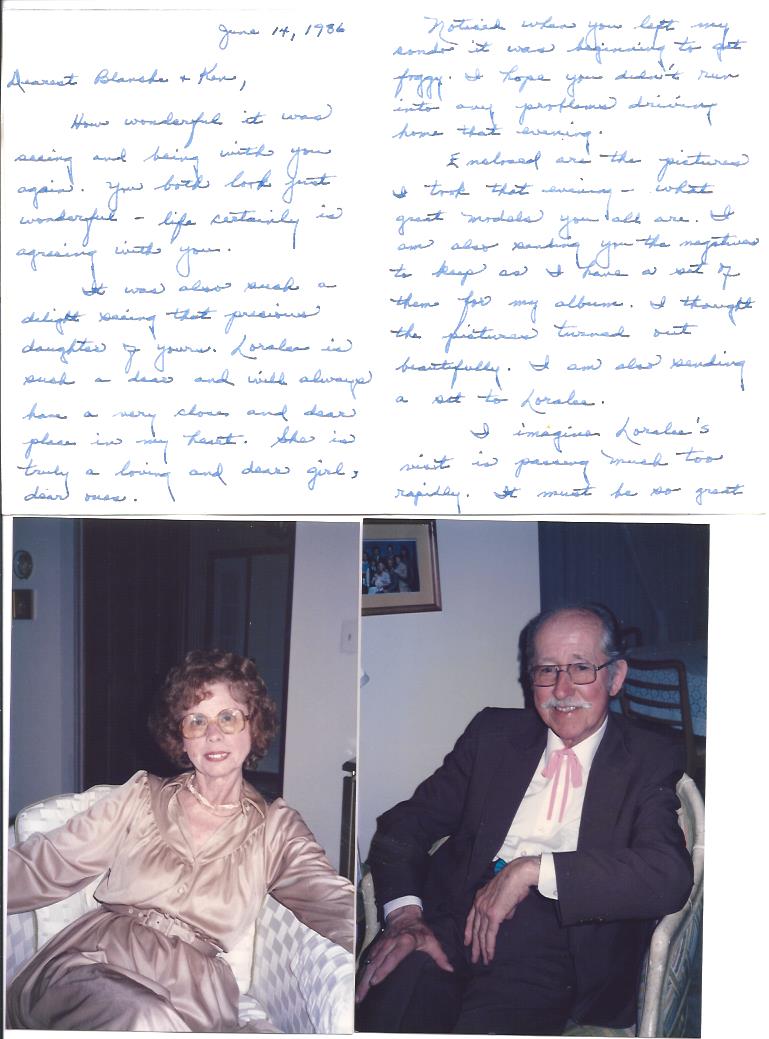 June 14, 1986
Dearest Blanche + Ken,
How wonderful it was
seeing and being with you
again. You both look just
wonderful - life certainly is
agreeing with you.
It was also such a
delight seeing that precious
daughter of yours. Loralee is
such a dear and will always
have a very close and dear
place in my heart. She is
truly a loving and dear girl,
dear ones.
Noticed when you left my
condo it was beginning to get
foggy. I hope you didn't run
into any problems driving
home that evening.
Enclosed are the pictures
I took that evening - what
great models you all are. I
am also sending you the negatives
to keep as I have a set of
them for my album. I thought
the pictures turned out
beautifully. I am also sending
a set to Loralee.
I imagine Loralee's
visit is passing much too
rapidly. It must be so great